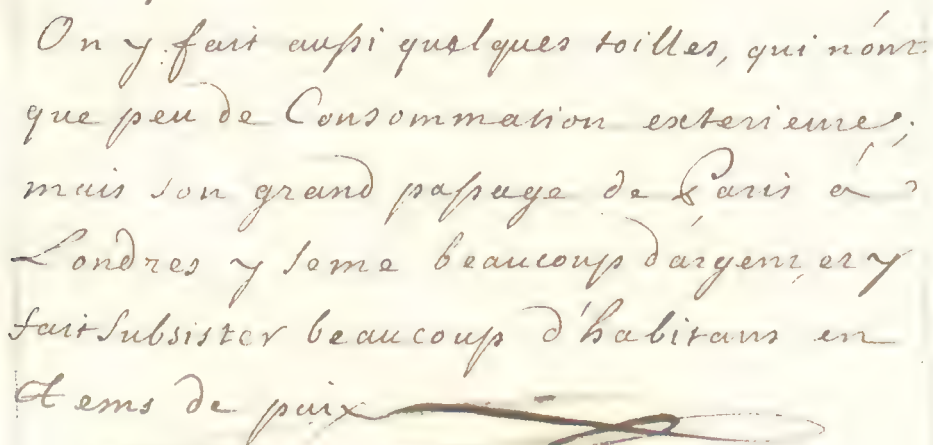 On y fait aussi quelques toilles, qui n'ont
que peu de Consommation exterieure;
mais son grand passage de Paris à
Londres y seme beaucoup d'argent, et y
fait Subsister beaucoup d'habitans en
tems de paix